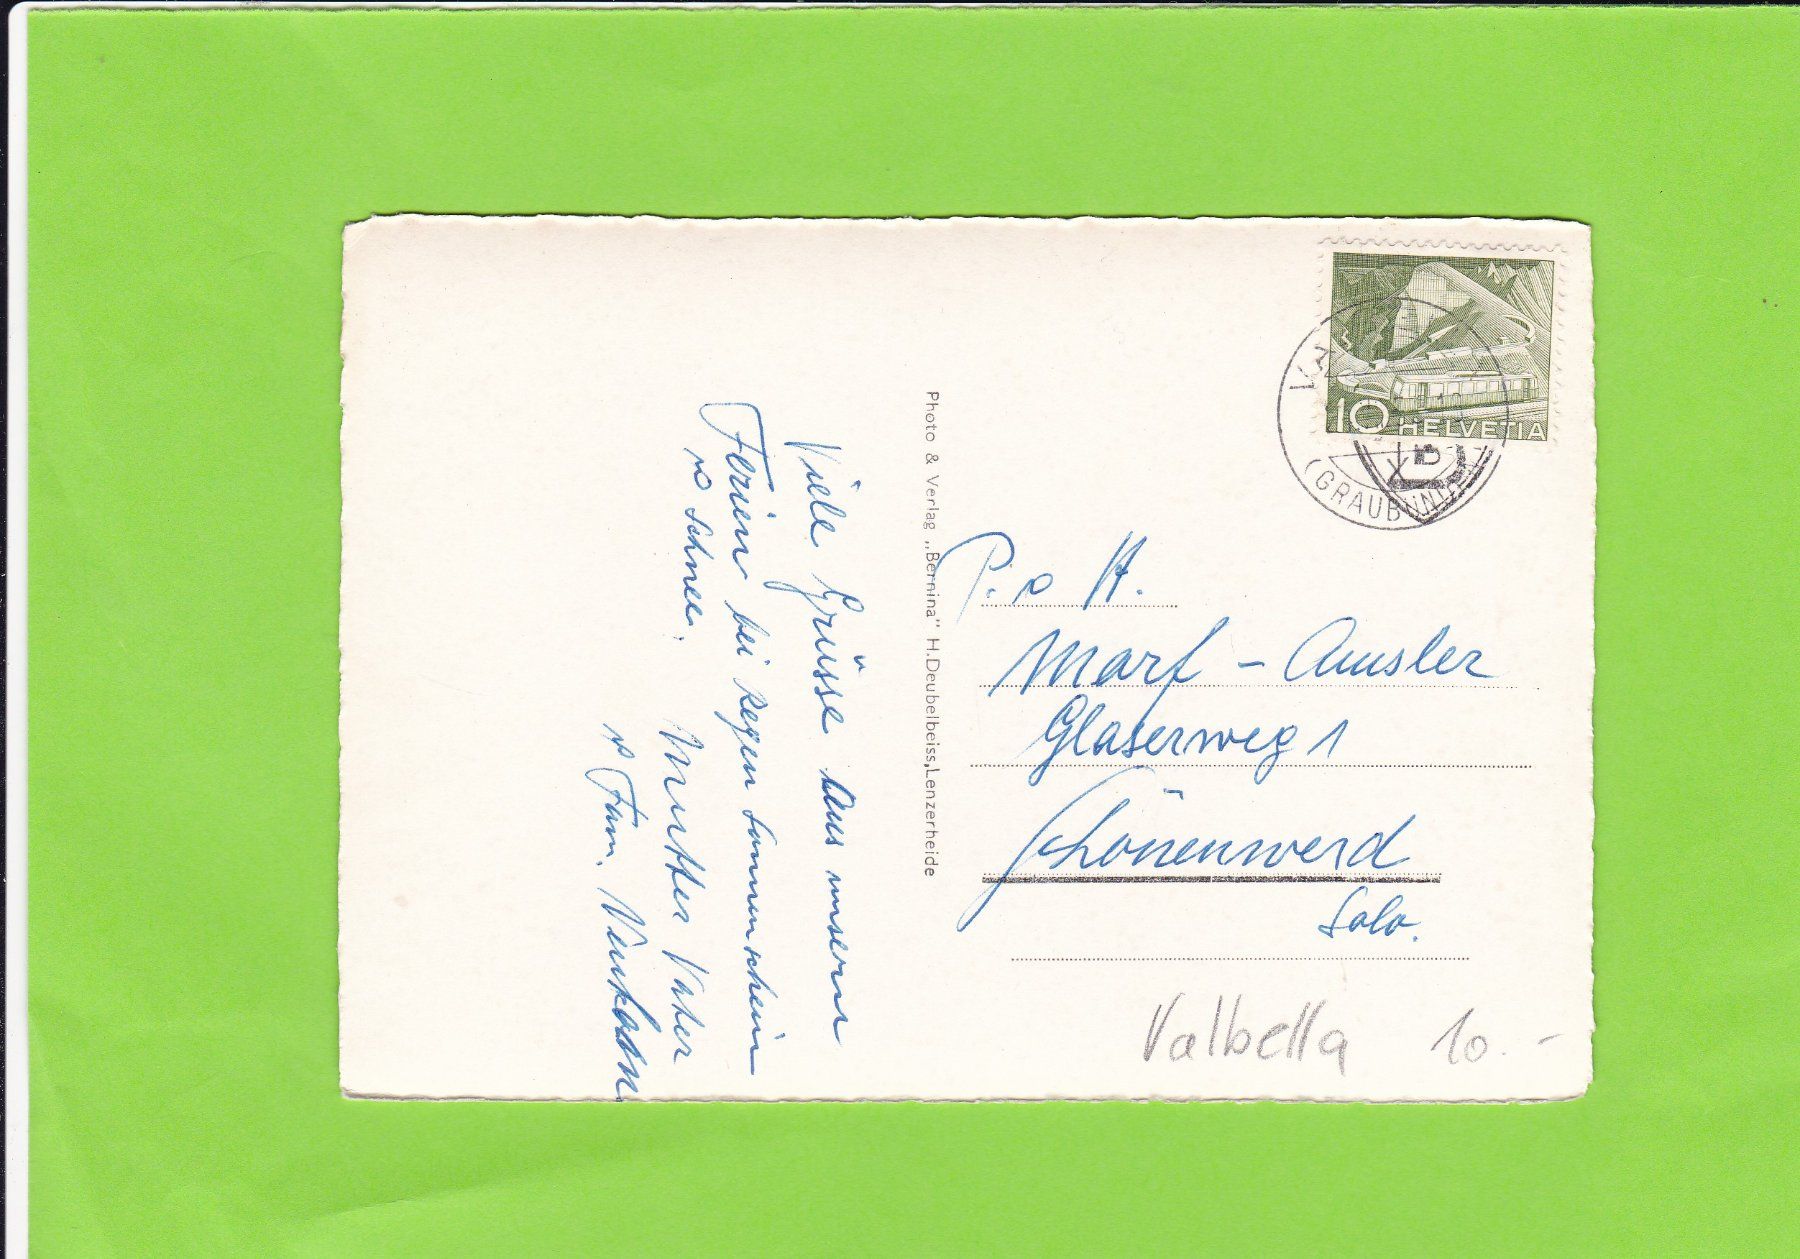 Viele Grüsse aus unsern
Ferien bei Regen Sonnenschein
& Schnee.
Mutter Vater
& Fam.
Photo & Verlag „Bernina" H. Deubelbeiss, Lenzerheide
10 HELVETIA
(GRAUBÜNDEN)
P. & H.
Marf - Amsler
Glaserweg 1
Schönenwerd
Solo.
Valbella 10.-